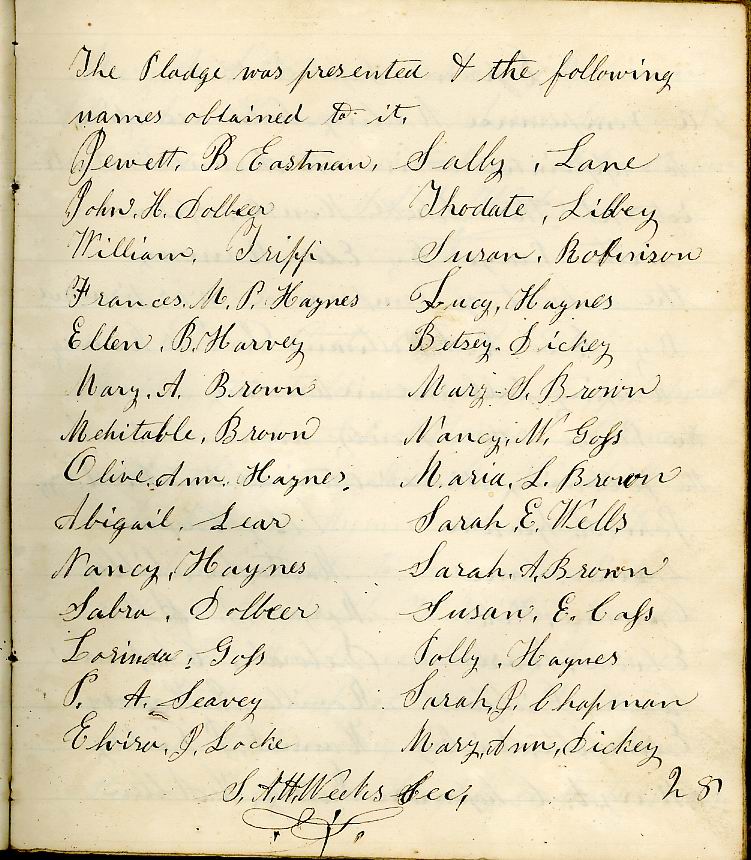 The Pladge was presented & the following
names obtained to it.
Jewett, B Eastman, Sally, Lane
John. H. Dolbeer Thodate, Libbey
William, Tripp Susan, Robinson
Frances. M. P. Haynes Lucy, Haynes
Ellen. B. Harvey Betsey. Dickey
Mary. A. Brown Mary. S. Brown
Mehitable, Brown Nancy. M. Goss
Olive. Ann. Haynes. Maria, L. Brown
Abigail. Lear Sarah E. Wells
Nancy, Haynes Sarah. A. Brown
Sabra, Dolbeer Susan, E. Cass
Lorinda, Goss Polly, Haynes
P. A. Seavey Sarah, J. Chapman
Elvira, J. Locke Mary, Ann, Dickey
S. A. H. Weeks Sec, 28